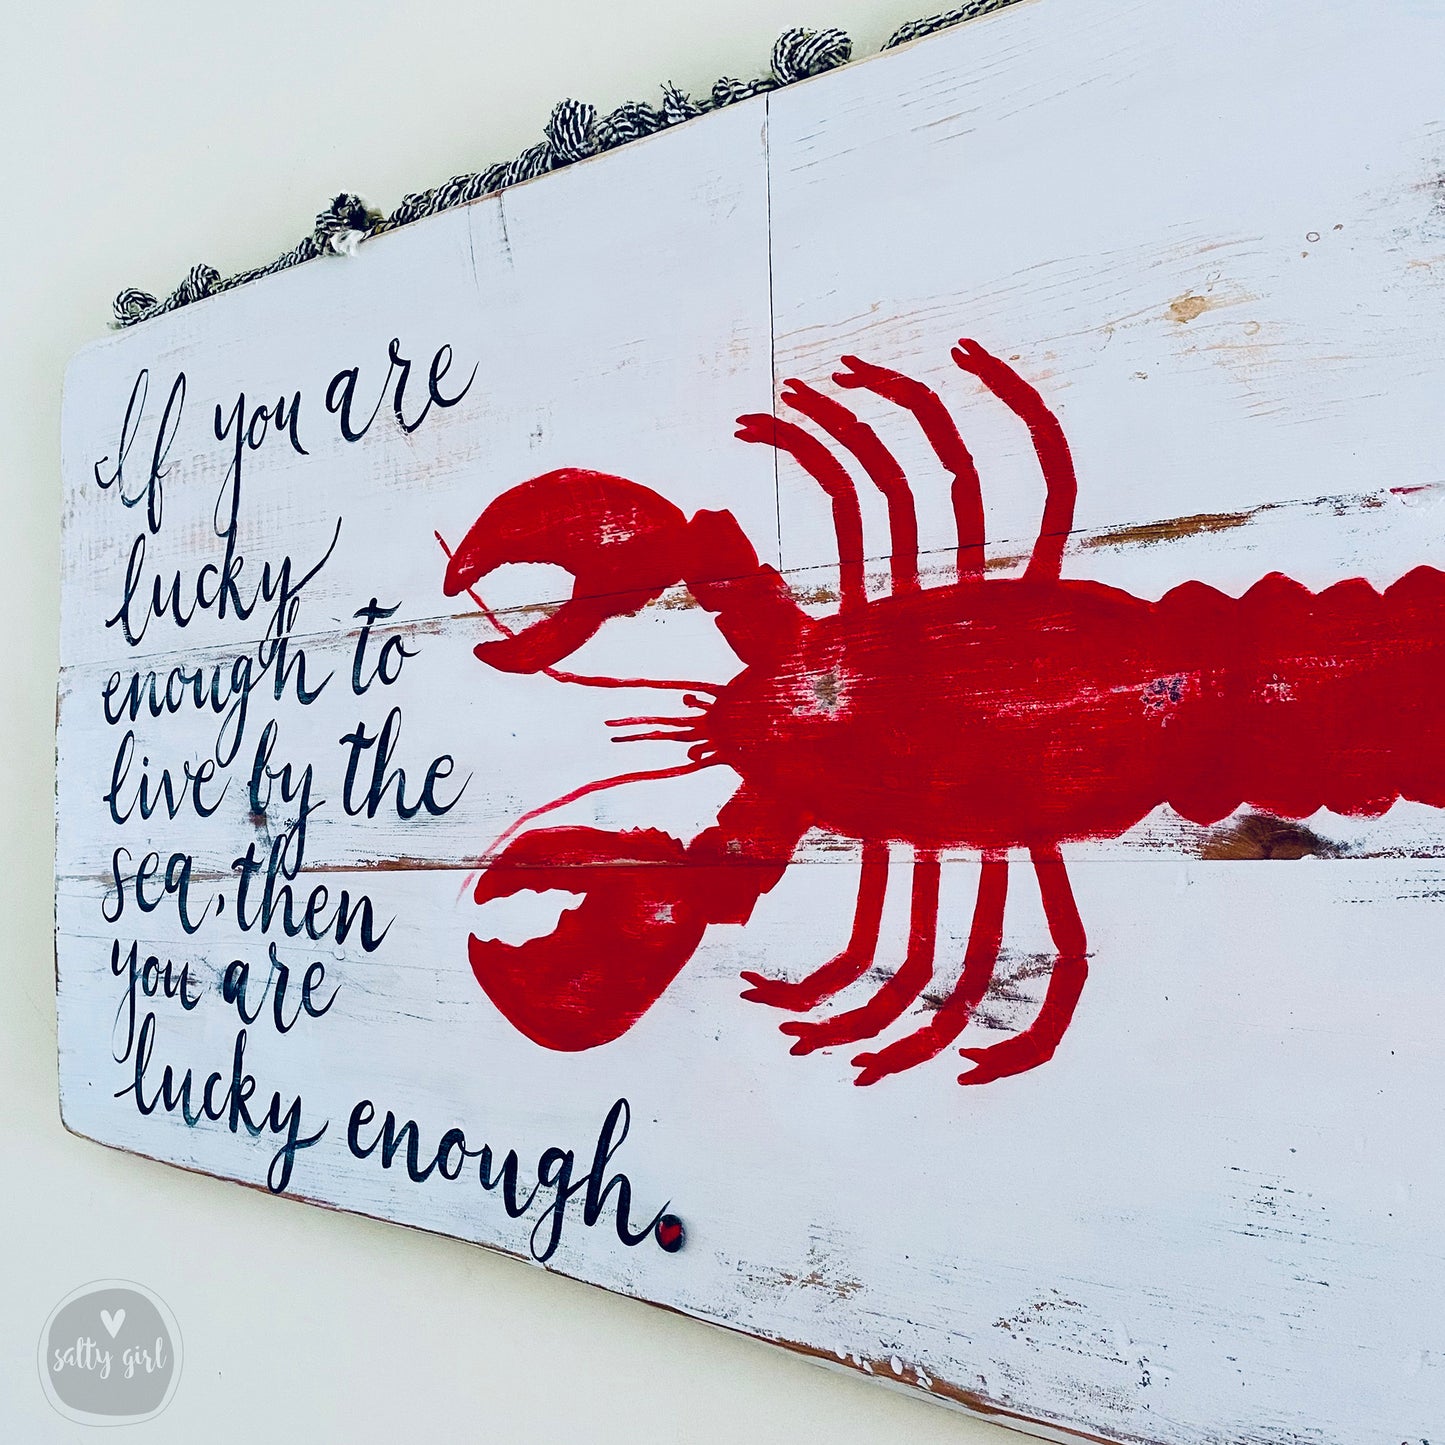 If you are
lucky
enough to
live by the
sea, then
you are
lucky enough.
salty girl